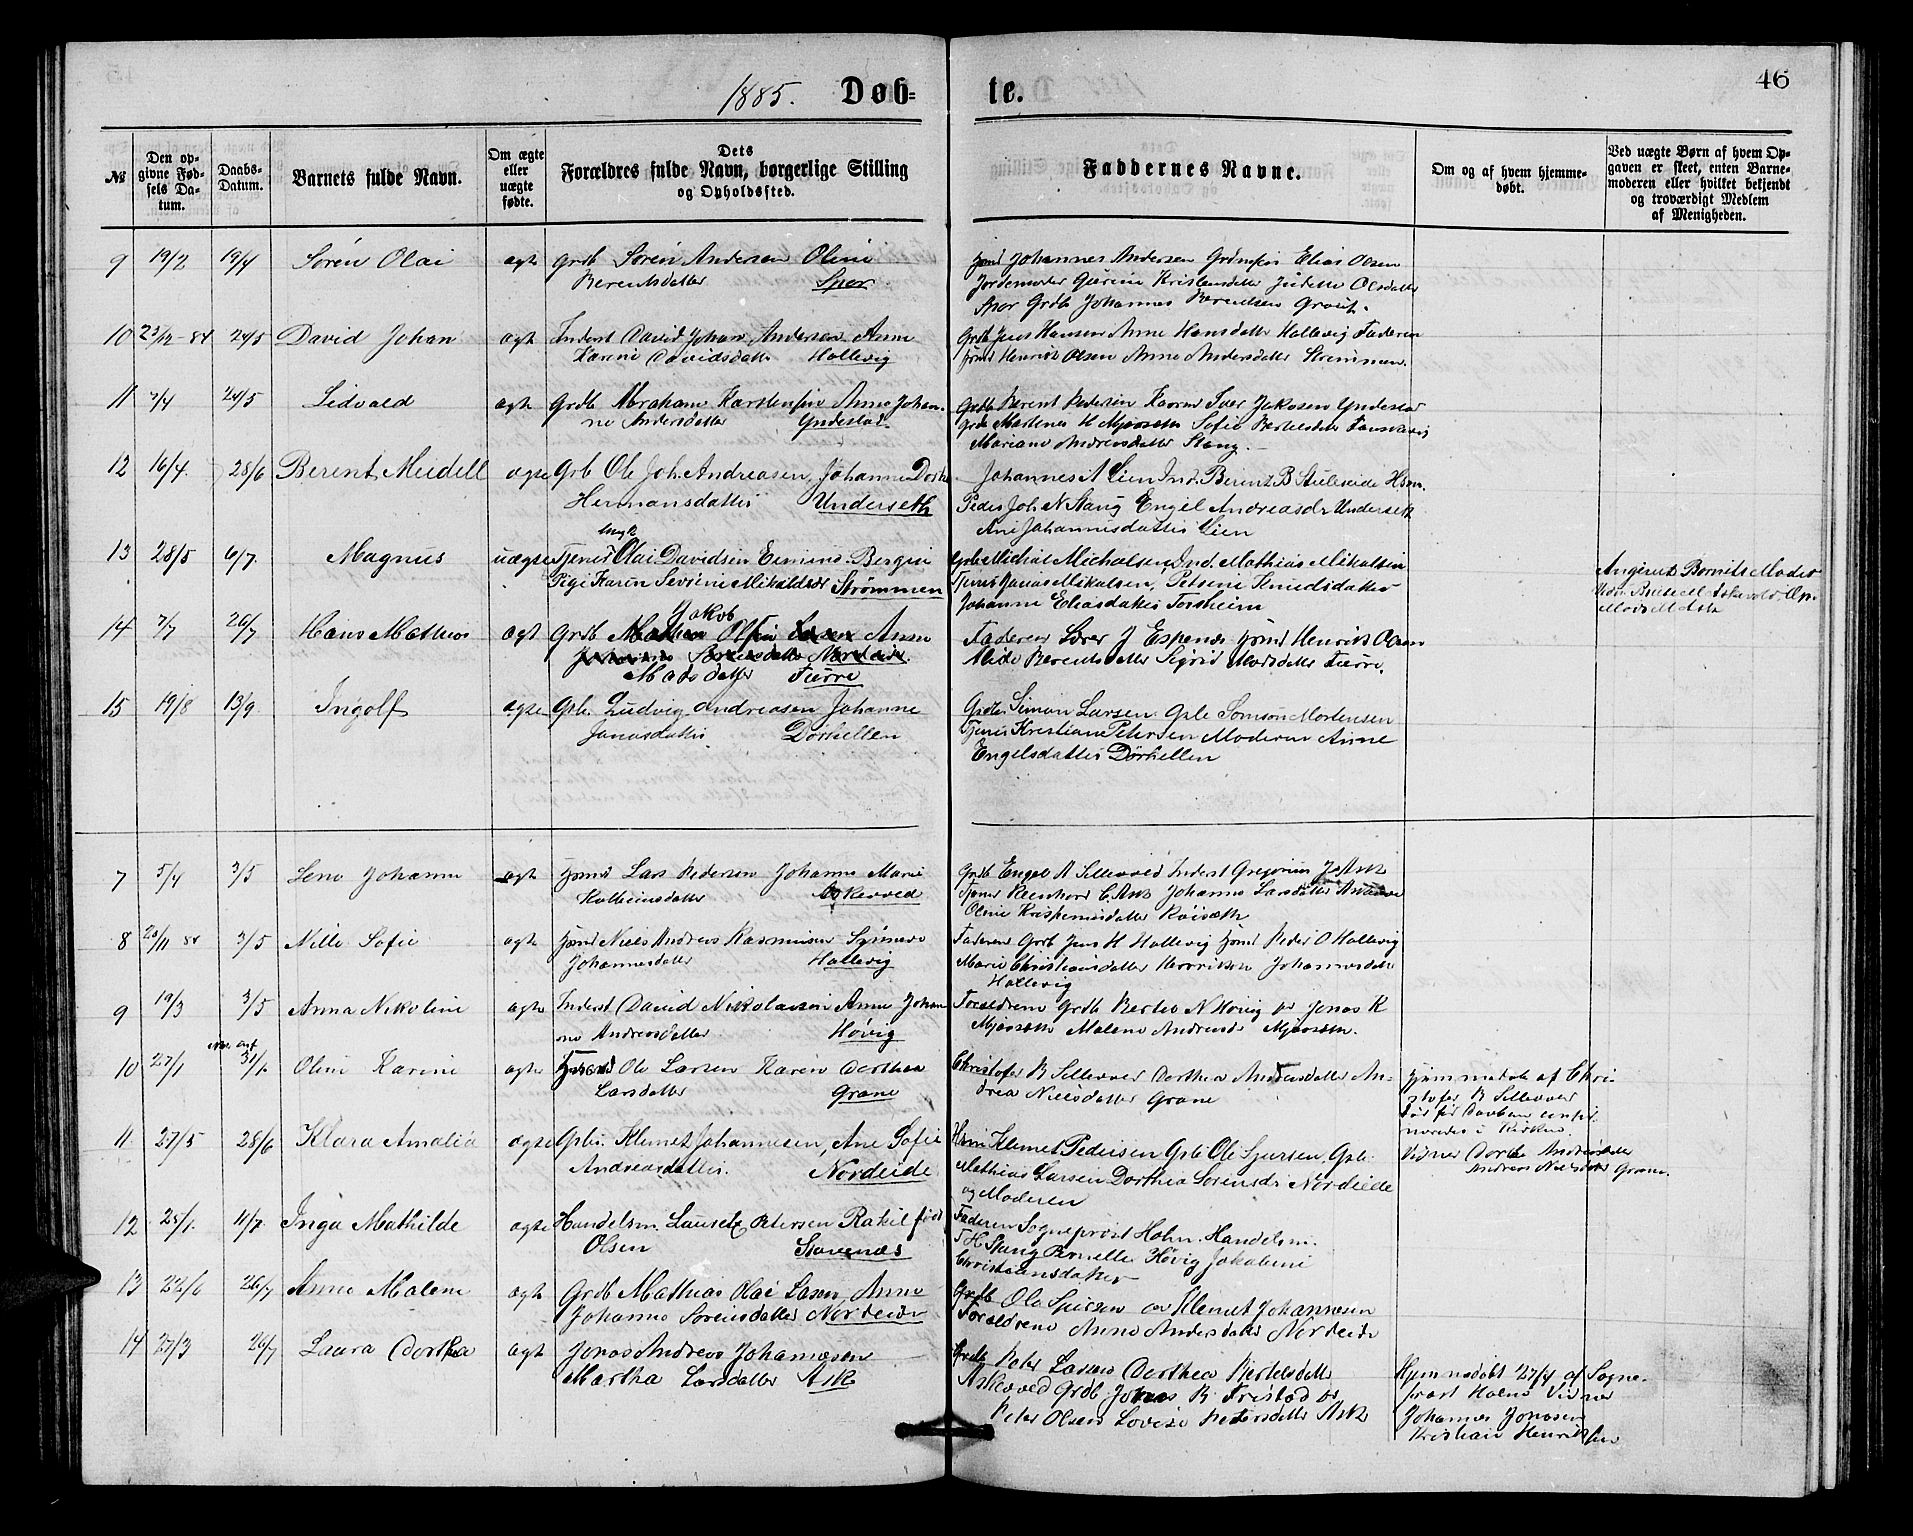 1885. Døb-
te.
46
№
Den opgivne Fødsels Datum.
Daabs-Datum.
Barnets fulde Navn.
Om ægte eller uægte fødte.
Dets Forældres fulde Navn, borgerlige Stilling og Opholdssted.
Faddernes Navne.
Om og af hvem hjemmedøbt.
Ved uægte Børn af hvem Opgaven er skeet, enten Barnemoderen eller hvilket bekjendt og troværdigt Medlem af Menigheden.
9 19/2 19/4 Søren Olai ægte Grdb Søren Andersen Oline
Berentsdatter Spor
Johannes Andersen Elias Olsen
Jordemoder Gurine Kristensdatter Judithe Olsdatter
Spor Grdb Johannes Berentsen
10 23/12 84 24/5 David Johan ægt Inderst David Johan Andersen Anne
Karine Davidsdatter Hellevig
Grdb Jens Hansen Anne Hansdatter Hellevig Faderen
Henrik Olsen Anne Andersdatter Strømmen
11 3/4 24/5 Sidvald ægte Grdb Abraham Karstensen Anne Johan-
ne Andersdatter Yndestad
Grdb Berent Pedersen Iver Jakobsen Yndestad
Grdb Martenes H Mjaaseth Sofie Bertelsdatter
Mariane Andreasdatter Stang
12 16/4 28/6 Berent Meidell ægte Grb Ole Joh. Andreasen, Johanne Dorthe
Hermansdatter Underseth
Johannes A Lien Ind. Berent B Stuleseide Hsm.
Peder Joh N Stang Engel Andreasdr Underseth
Ane Johannesdatter Lien
13 28/5 6/7 Magnus uægte Tjener Olai Davidsen Bergen
Pige Karen Severine Mikalsdatter Strømmen
Gbr Michal Michalsen Ind. Mathias Mikalsen
Tjener Jonas Mikalsen, Petrine Knudsdatter
Johanne Eliasdatter Forsheim
Angivet Barnets Moder
14 7/7 26/7 Hans Mathias ægt Jakob
Grdb Olsen Anne
Madsdatter Fure
Faderen J Espenes Henrik Olsen
Berentsdatter Sigrid Madsdatter Furre
15 19/8 13/9 Ingolf ægte Gbr. Ludvig Andreasen Johanne
Jonasdatter Dørhellen
Simon Larsen Gbr Samson Mortensen
Tjener Kristiane Petersen Moderen Anne
Engelsdatter Dørhellen
7 5/4 3/5 Lene Johanne ægte Lars Pedersen Johanne Marie
Askevved
Grdb Engel A Sellevold Inderst Gregorius J Ask
Tjener Reinhard C. Ask Johanne Larsdatter
Oline Rivseth
8 20/11 84 3/5 Nille Sofie ægte Niels Andreas Rasmussen Synneve
Johannesdatter Hellevig
Faderen Grdb Jens H Hellevig Peder O Hellevig
Marie Christiansdatter Henrikke Johannesdatter
Hellevig
9 19/3 3/5 Anna Nikoline ægte Inderst David Nikolaisen Anne Johan
ne Andreasdatter Høvig
Forældrene Grdb Bertel N Høvig og Jonas R
Mjaaseth Malene Andreasdr Mjaaseth.
10 27/1 31/1 Oline Karine ægte Ole Larsen Karen Dorthea
Larsdatter Grane
Christofer B Sellevold Dorthea Andreasdatter An-
drea Nielsdatter Grane
Hjemmedøbt af Chri-
stofer B Sellevold
Vidner Dorthe Andreasdatter
Andrea Nielsdatter Grane.
11 27/5 28/6 Klara Amalia ægte Gbr. Klemet Johannesen, Ane Sofie
Andreasdatter. Nordeide
Klemet Pedersen Gbr Ole Sjursen, Gbr.
Mathias Larsen Dorthea Sørensdr Nordeide
og Moderen
12 25/1 11/7 Inga Mathilde ægte Handelsm. Lauritz Petersen Rakel født
Olsen Stavenæs
Faderen Sogneprost Holm. Handelsm.
H Stang Pernelle Høvig Jakobine
Christiansdatter
13 22/6 26/7 Anne Malene ægte Grdb Mathias Olai Lasen, Anne
Johanne Sørensdatter Nordeide
Grdb Ole Sjursen og Klemet Johannesen
Forældrene Anne Andersdatter Nordeide
14 27/3 26/7 Laura Dorthea ægt Jonas Andreas Johannesen
Martha Larsdatter Ask
Grdb Peter Larsen Dorthea Bertelsdatter
Askevved Grdb Jonas B. Fristad og
Peter Olsen Lovise Pedersdatter Ask
Hjemmedøbt 27/4 af Sogne-
prost Holm Vidner
Johannes Jonasen
Kristian Henriksen